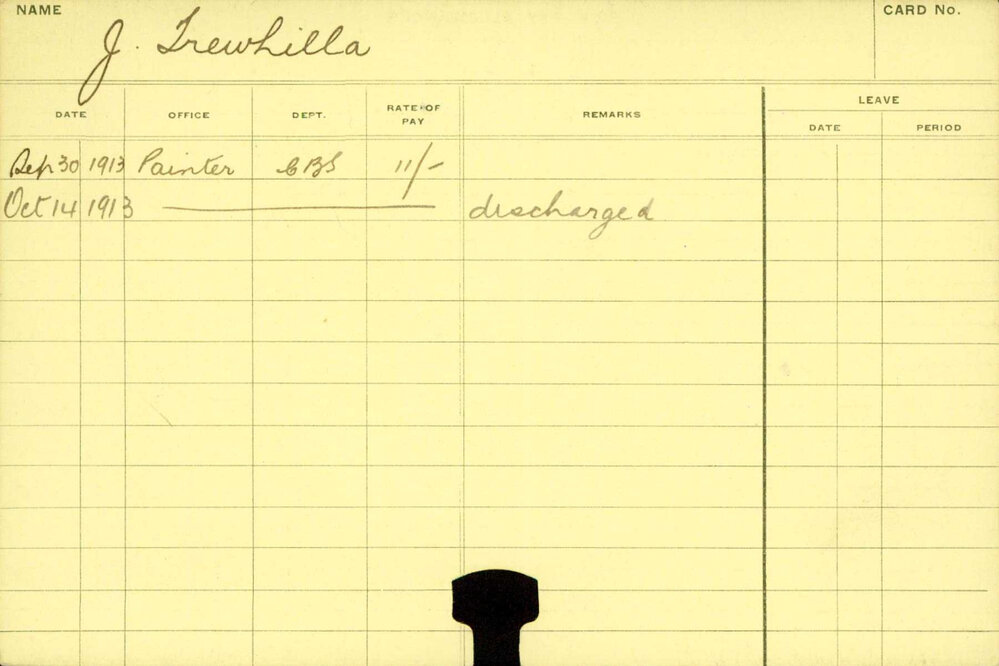 NAME
CARD No.
J. Trewhilla
DATE OFFICE DEPT. RATE OF PAY REMARKS LEAVE
DATE PERIOD
Sep 30 1913 Painter CBS 11/-
Oct 14 1913 ——— discharged